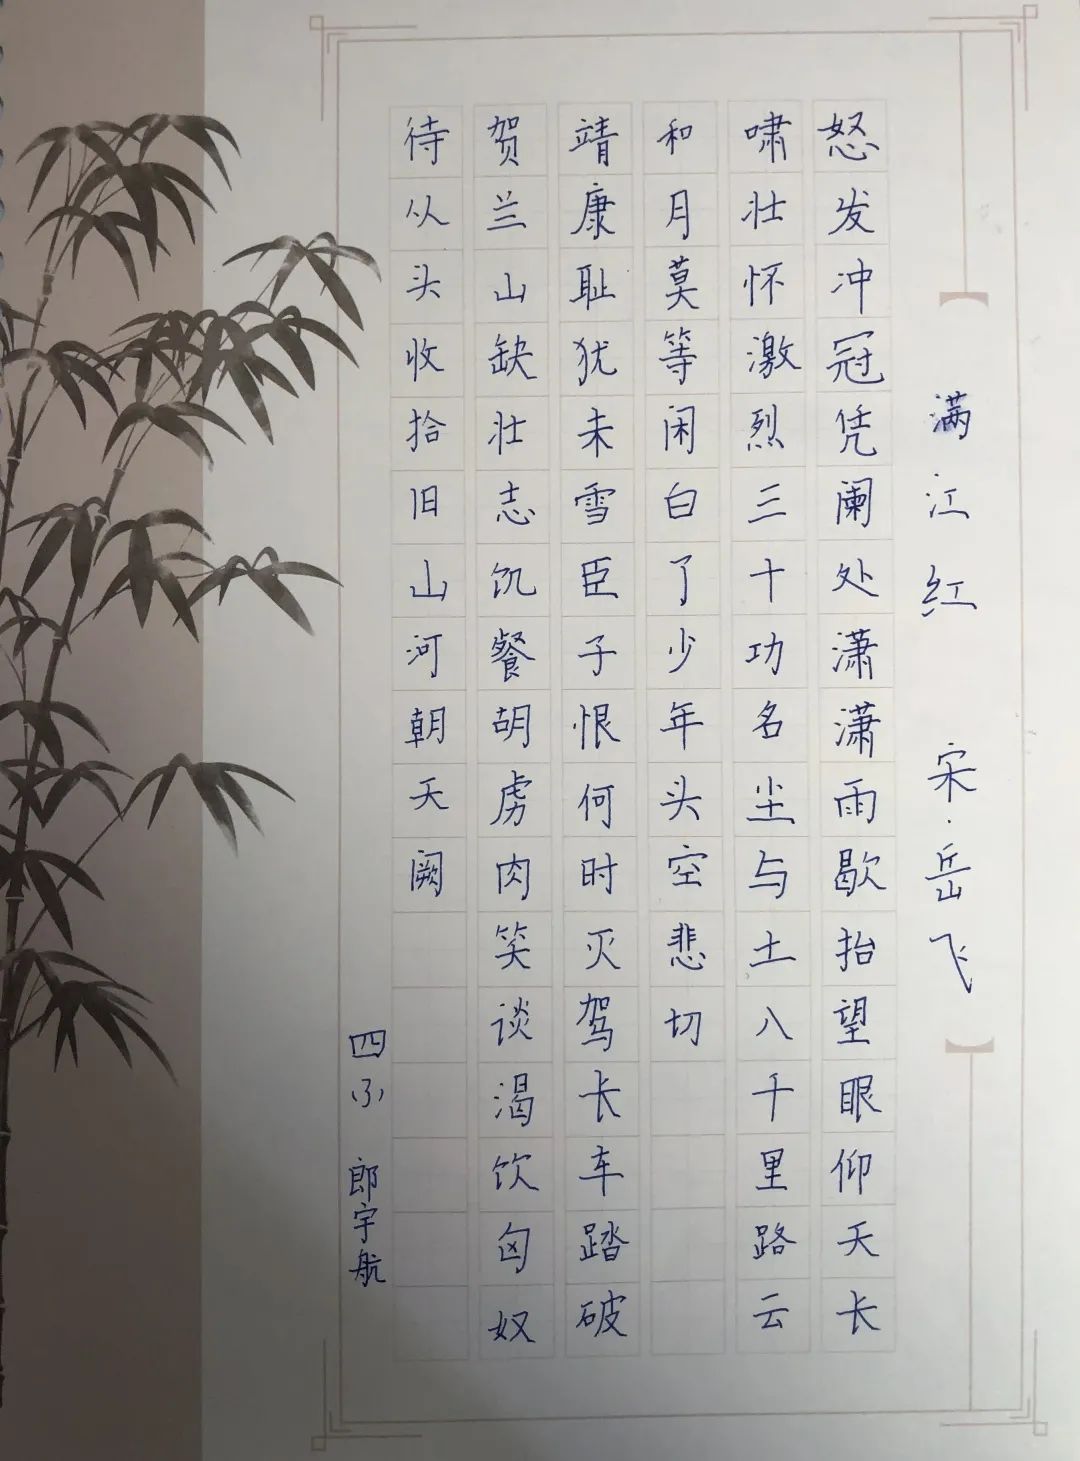 满江红 宋·岳飞
怒发冲冠凭阑处潇潇雨歇抬望眼仰天长
啸壮怀激烈三十功名尘与土八千里路云
和月莫等闲白了少年头空悲切
靖康耻犹未雪臣子恨何时灭驾长车踏破
贺兰山缺壮志饥餐胡虏肉笑谈渴饮匈奴
待从头收拾旧山河朝天阙
四 郎宇航